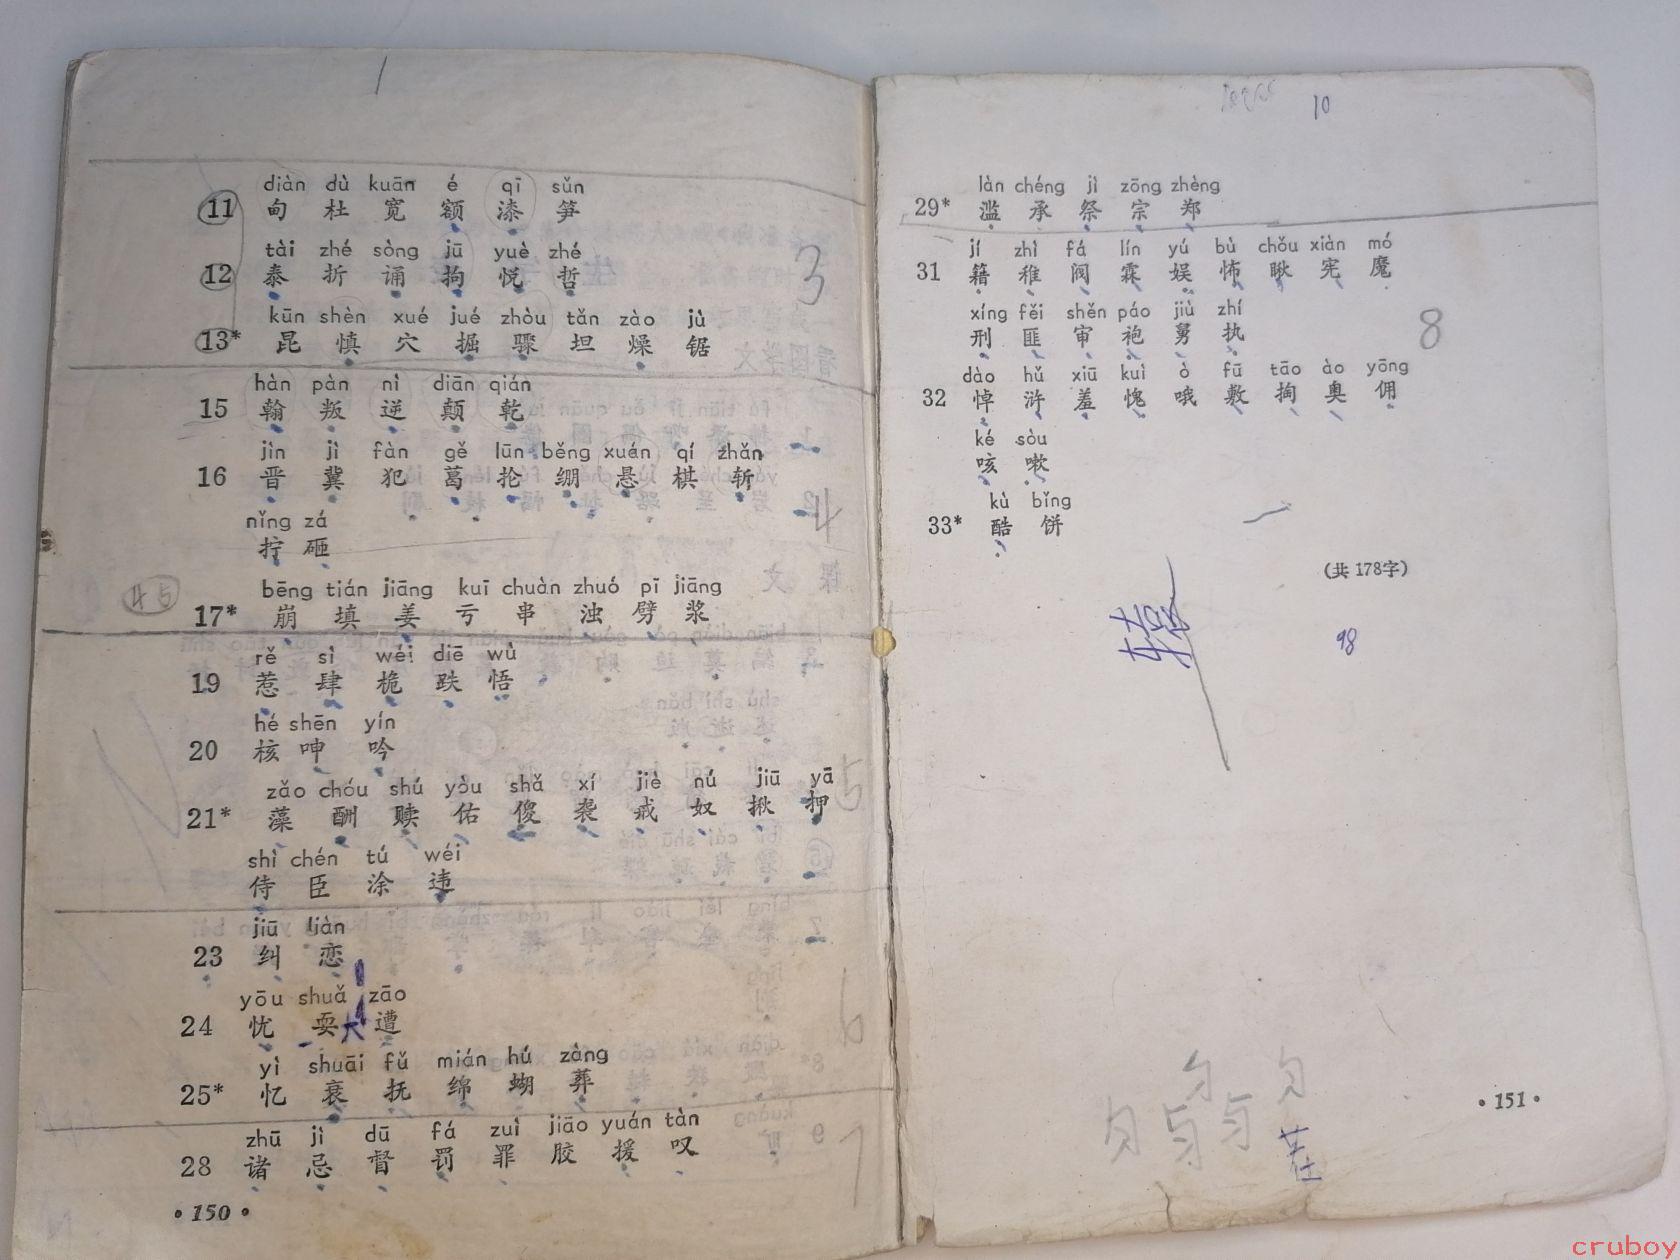 diàn dù kuān é qī sǔn
11 甸 杜 宽 额 漆 笋
tài zhé sòng jū yuè zhé
12 泰 折 诵 拘 悦 哲
kūn shèn xué jué zhòu tǎn zào jù
13* 昆 慎 穴 掘 骤 坦 燥 锯
3
hàn pàn nì diān qián
15 翰 叛 逆 颠 乾
jìn jì fàn gě lūn běng xuán qí zhǎn
16 晋 冀 犯 葛 抡 绷 悬 棋 斩
nǐng zá
拧 砸
4
bēng tián jiāng kuī chuàn zhuó pī jiāng
17* 崩 填 姜 亏 串 浊 劈 浆
45
rě sì wéi diē wù
19 惹 肆 桅 跌 悟
hé shēn yín
20 核 呻 吟
zǎo chóu shú yòu shǎ xí jiè nú jiū yā
21* 藻 酬 赎 佑 傻 袭 戒 奴 揪 押
5
shì chén tú wéi
侍 臣 涂 违
jiū liàn
23 纠 恋
yōu shuǎ zāo
24 忧 耍 遭
大
6
yì shuāi fǔ mián hú zàng
25* 忆 衰 抚 绵 蝴 葬
zhū jì dū fá zuì jiāo yuán tàn
28 诸 忌 督 罚 罪 胶 援 叹
7
• 150 •
10
làn chéng jì zōng zhèng
29* 滥 承 祭 宗 郑
jí zhì fá lín yú bù chǒu xiàn mó
31 籍 稚 阀 霖 娱 怖 瞅 宪 魔
xíng fěi shěn páo jiù zhí
刑 匪 审 袍 舅 执
8
dào hǔ xiū kuì ò fū tāo ào yōng
32 悼 浒 羞 愧 哦 敷 掏 奥 佣
ké sòu
咳 嗽
kù bǐng
33* 酷 饼
(共 178字)
98
• 151 •
cruboy